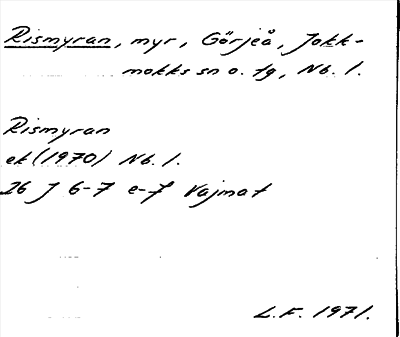 Rismyran, myr, Görjeå, Jokk-
mokks sn o. tg, Nb. l.
Rismyran
ek (1970) Nb. l.
26 J 6-7 e-f Vajmat
L.F. 1971.